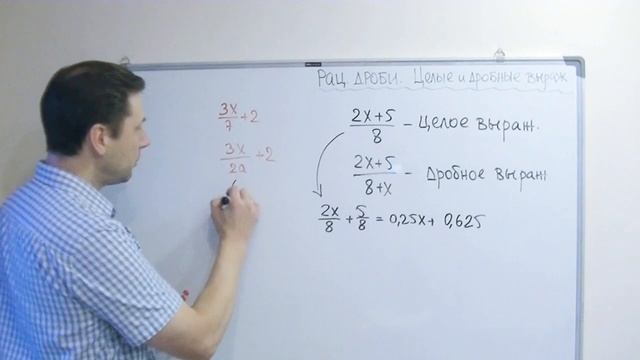 Рац. дроби. Целые и дробные выраж
3x/7 + 2
3x/2a + 2
2x+5/8 – Целое выраж.
2x+5/8+x – Дробное выраж
2x/8 + 5/8 = 0,25x + 0,625